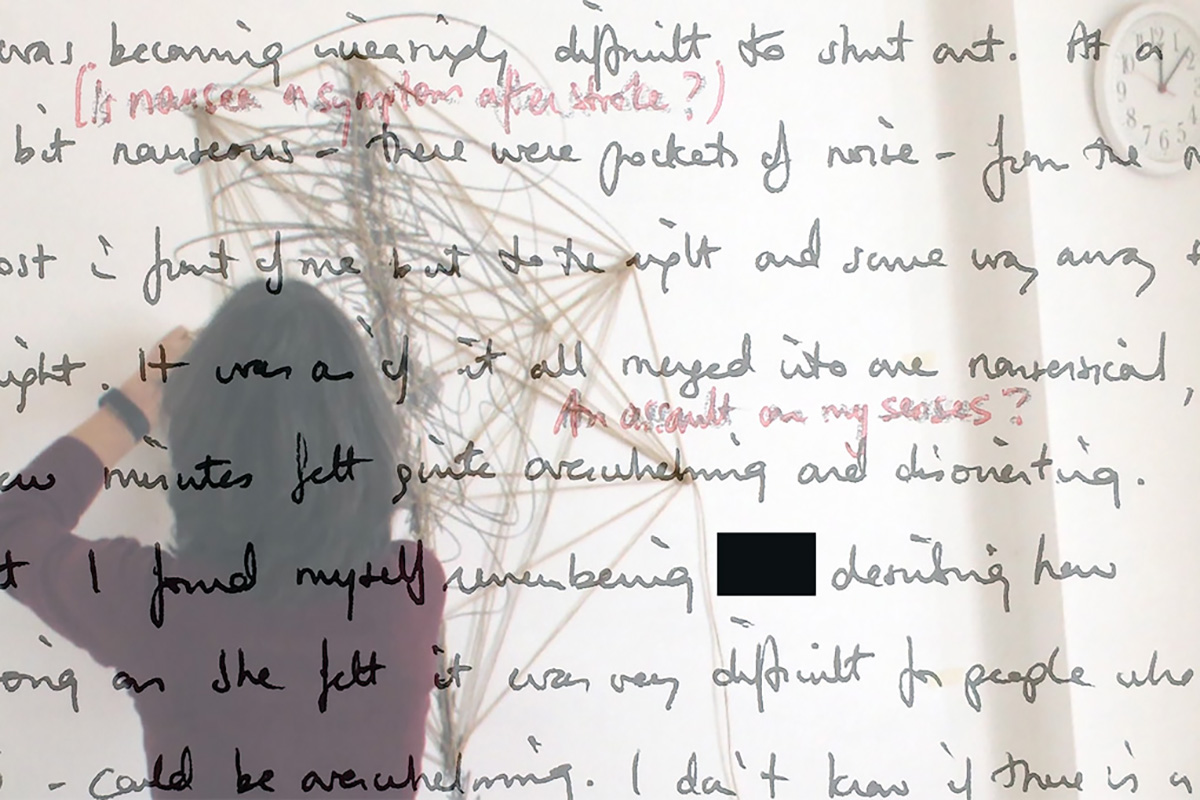 was becoming increasingly difficult to shut out. At a
(Is nausea a symptom after stroke?)
bit nauseous - there were pockets of noise - from the
ost in front of me but to the right and some way away
ight. It was as if it all merged into one nonsensical,
An assault on my senses?
ew minutes felt quite overwhelming and disorienting.
t I found myself remembering describing how
ong as she felt it was very difficult for people who
- could be overwhelming. I don't know if there is a
12 1 2 4 5 6 7 8 9 10